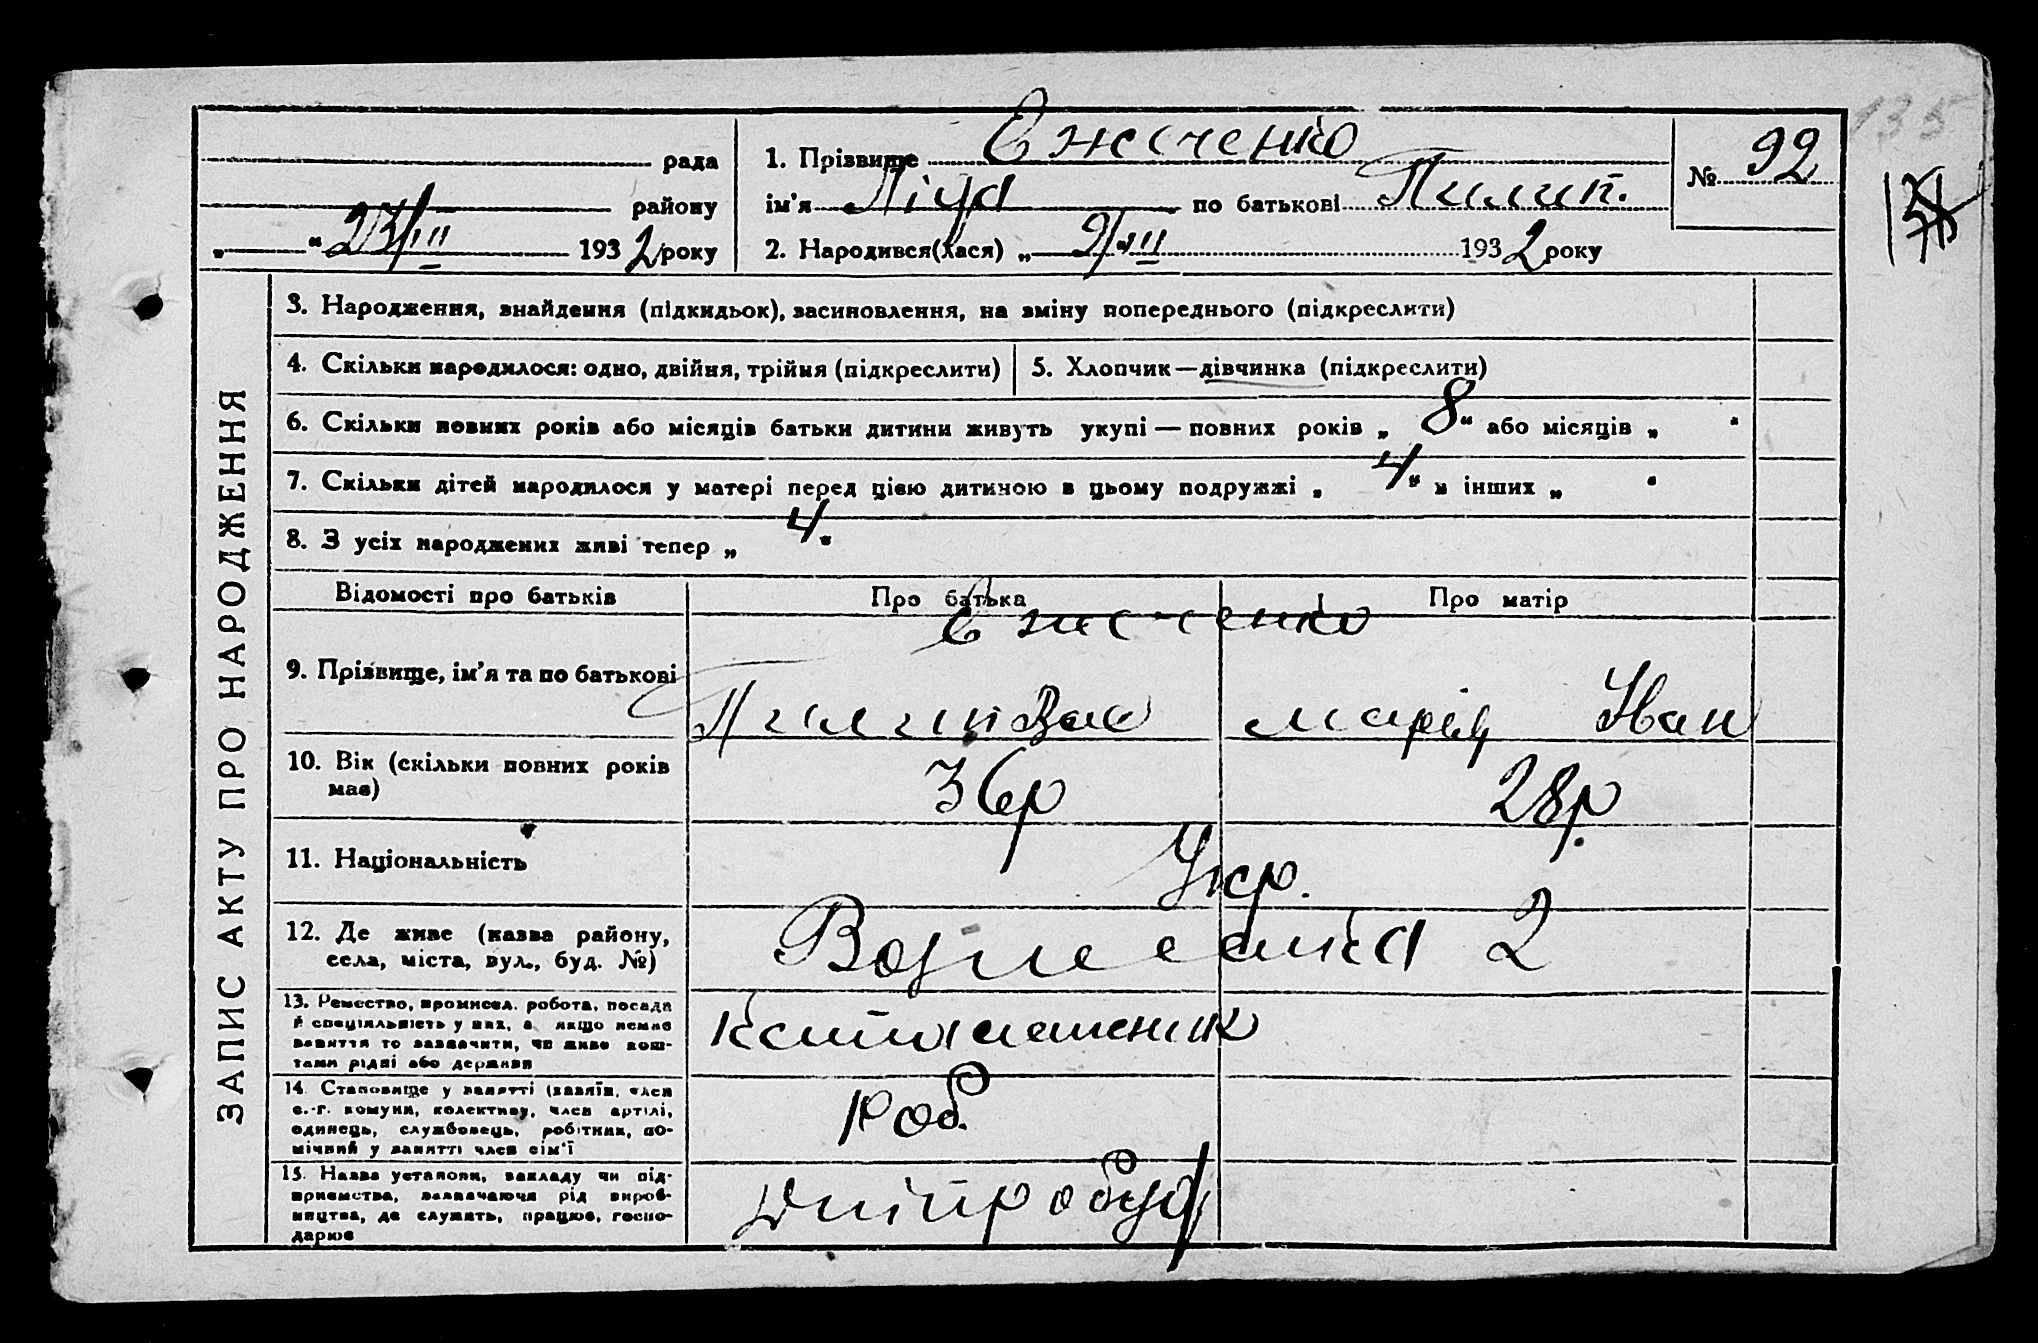 135
рада
району
„ “ 23/III 1932 року
1. Прізвище Єжеченко
ім'я Ліда по батькові Пилип.
2. Народився(лася) „ 9/III 1932 року
№ 92
ЗАПИС АКТУ ПРО НАРОДЖЕННЯ
3. Народження, знайдення (підкидьок), засиновлення, на зміну попереднього (підкреслити)
4. Скільки народилося: одно, двійня, трійня (підкреслити)
5. Хлопчик—дівчинка (підкреслити)
6. Скільки повних років або місяців батьки дитини живуть укупі — повних років „ 8 “ або місяців „ “
7. Скільки дітей народилося у матері перед цією дитиною в цьому подружжі „ 4 “ в інших „ “
8. З усіх народжених живі тепер „ 4 “
Відомості про батьків
Про батька
Про матір
9. Прізвище, ім'я та по батькові
Єжеченко
Пилип Вас
Марія Іван
10. Вік (скільки повних років має)
36р
28р.
11. Національність
Укр.
12. Де живе (назва району, села, міста, вул., буд. №)
Вознесенка 2
13. Ремество, промисел, робота, посада й спеціяльність у них, а якщо немає заняття то зазначити, чи живе коштами рідні або держави
14. Становище у занятті (хазяїн, член с.-г. комуни, колективу, член артілі, одинець, службовець, робітник, помічний у занятті член сім'ї
Роб.
15. Назва установи, закладу чи підприємства, зазначаючи рід виробництва, де служить, працює, господарює
Дніпробуд